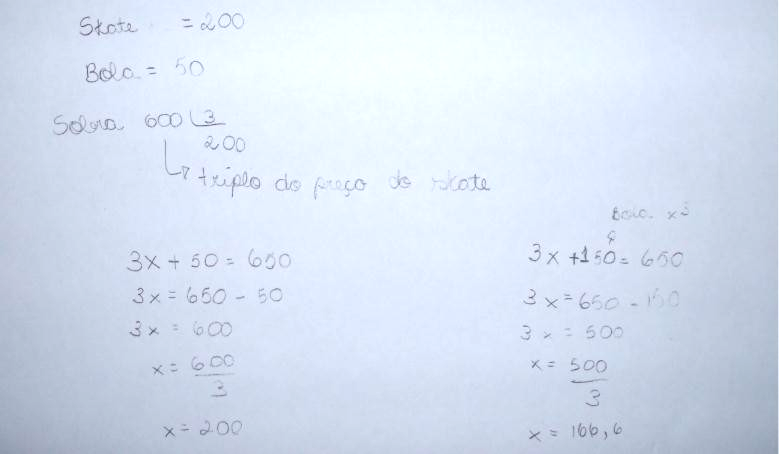 Skate = 200
Bola = 50
Sobra 600 3
200
triplo do preço do skate
3x + 50 = 650
3x = 650 - 50
3x = 600
x = 600
3
x = 200
Bola x3
3x + 150 = 650
3x = 650 - 150
3x = 500
x = 500
3
x = 166,6